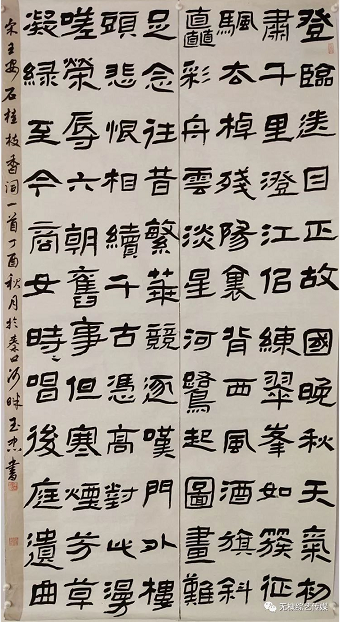 登臨送目正故國晚秋天氣初
肅千里澄江佀練翠峯如簇征
颿去棹殘陽裏背西風酒旗斜
矗彩舟雲淡星河鷺起圖畫難
足念往昔繁華競逐嘆門外樓
頭悲恨相續千古憑高對此謾
嗟榮辱六朝舊事但寒煙芳草
凝綠至今商女時〻唱後庭遺曲
宋王安石桂枝香词一首丁酉秋月於河畔玉書
无棣综艺传媒